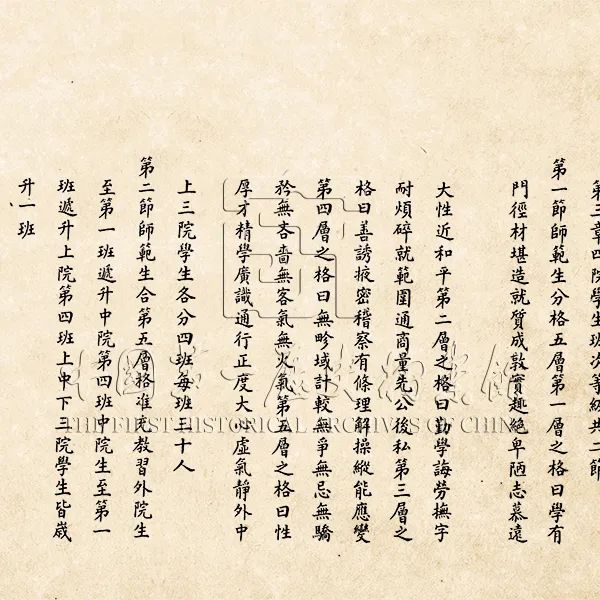 第三章四院學生班次等級共二節
第一節師範生分格五層第一層之格曰學有
門徑材堪造就質成敦實趣絕卑陋志慕遠
大性近和平第二層之格曰勤學誨勞撫字
耐煩碎就範圍通商量先公後私第三層之
格曰善誘掖密稽察有條理解操縱能應變
第四層之格曰無畛域計較無爭無忌無驕
矜無吝嗇無客氣無火氣第五層之格曰性
厚才精學廣識通行正度大心虛氣靜外中
上三院學生各分四班每班三十人
第二節師範生合第五層格准充教習外院生
至第一班遞升中院第四班中院生至第一
班遞升上院第四班上中下三院學生皆歲
升一班
中國第一歷史檔案館
THE FIRST HISTORICAL ARCHIVES OF CHINA